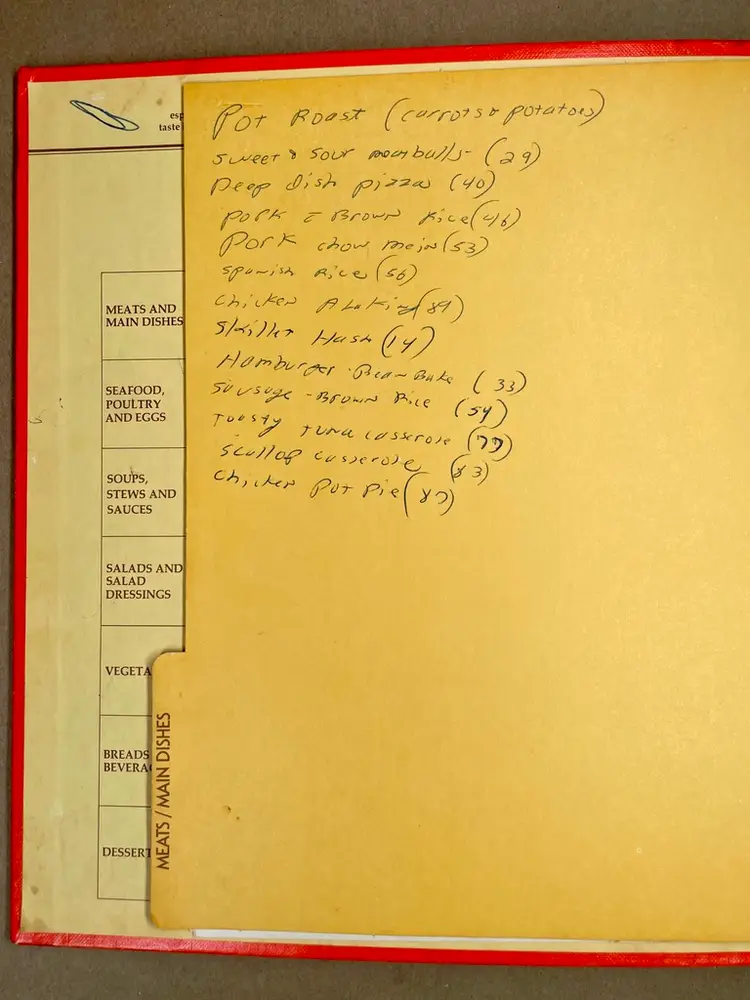 esp
taste
Pot Roast (carrots & potatoes)
sweet & sour meatballs - (29)
Deep dish pizza (40)
pork c̄ Brown Rice (46)
Pork chow mein (53)
spanish Rice (56)
chicken A La King (89)
Skillet Hash (14)
Hamburger - Bean Bake (33)
sausage - Brown Rice (54)
Toasty tuna casserole (77)
Scallop casserole (83)
chicken Pot Pie (87)
MEATS AND
MAIN DISHES
SEAFOOD,
POULTRY
AND EGGS
SOUPS,
STEWS AND
SAUCES
SALADS AND
SALAD
DRESSINGS
VEGETA
BREADS
BEVERA
DESSERT
MEATS / MAIN DISHES